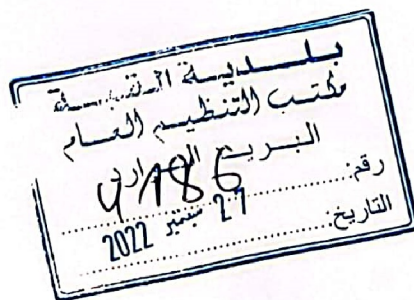 بلدية القبة
مكتب التنظيم العام
البريد الوارد
رقم: 4186
التاريخ: 27 سبتمبر 2022